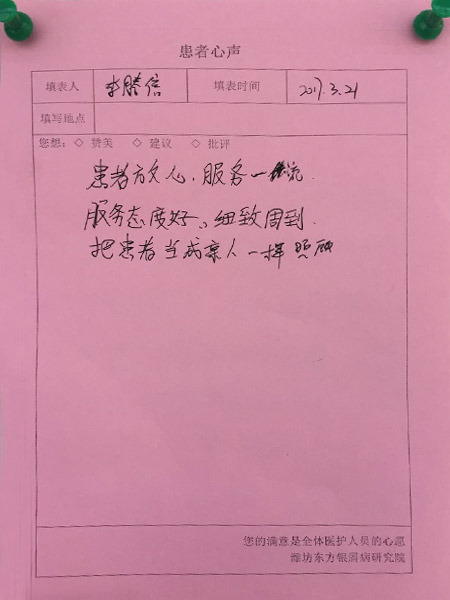 患者心声
填表人 李胜信 填表时间 2017.3.21
填写地点
您想：◇ 赞美 ◇ 建议 ◇ 批评
患者放心，服务一流.
服务态度好、细致周到.
把患者当成亲人一样照顾
您的满意是全体医护人员的心愿
潍坊东方银屑病研究院